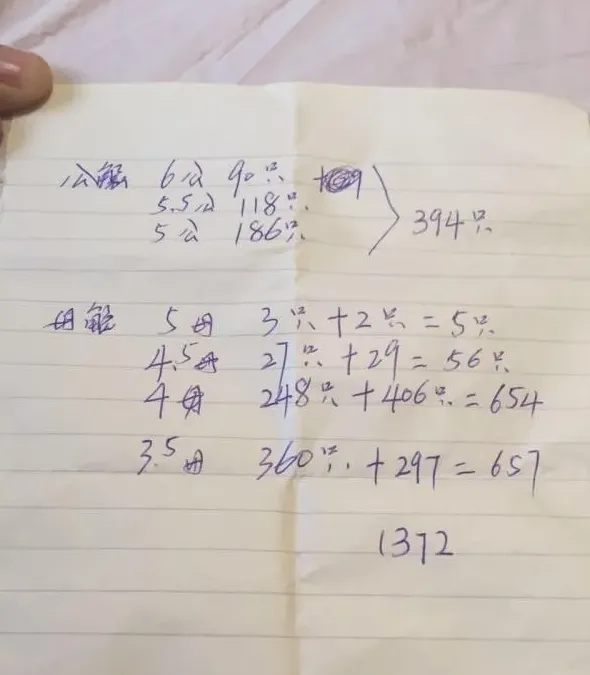 公蟹 6公 90只
5.5公 118只
5公 186只
394只
母蟹 5母 3只+2只=5只
4.5母 27只+29=56只
4母 248只+406只=654
3.5母 360只+297=657
1372